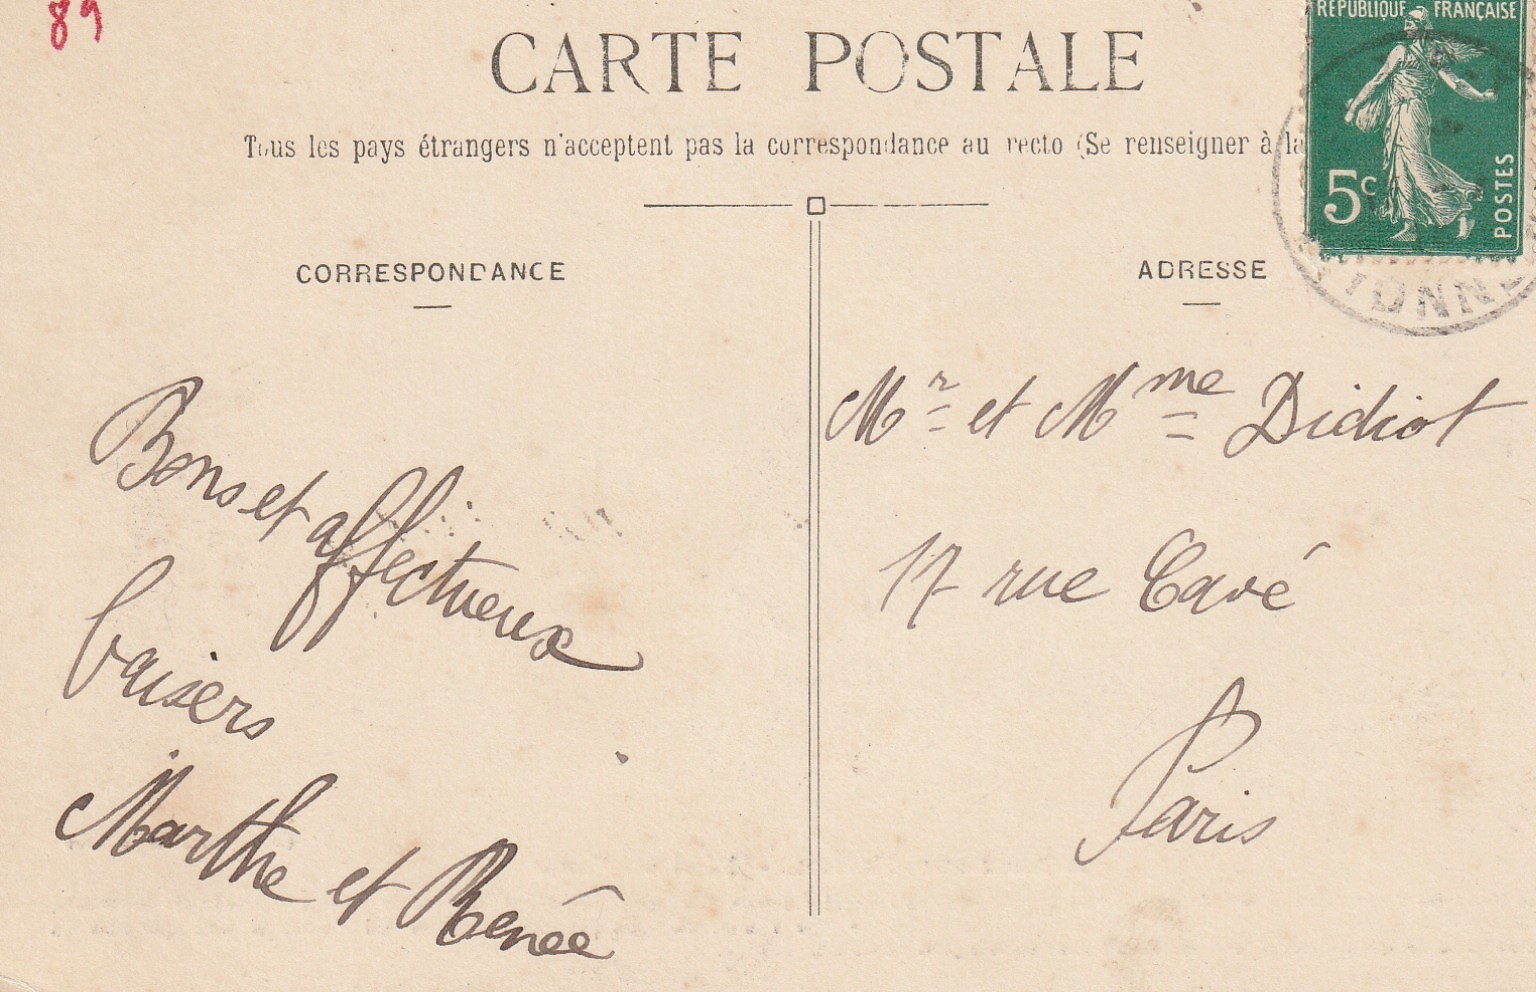 89
CARTE POSTALE
Tous les pays étrangers n'acceptent pas la correspondance au recto (Se renseigner à la
RÉPUBLIQUE FRANÇAISE
5c
POSTES
CORRESPONDANCE
Bons et affectueux
baisers
Marthe et Renée
ADRESSE
Mr et Mme Didiot
17 rue Cavé
Paris